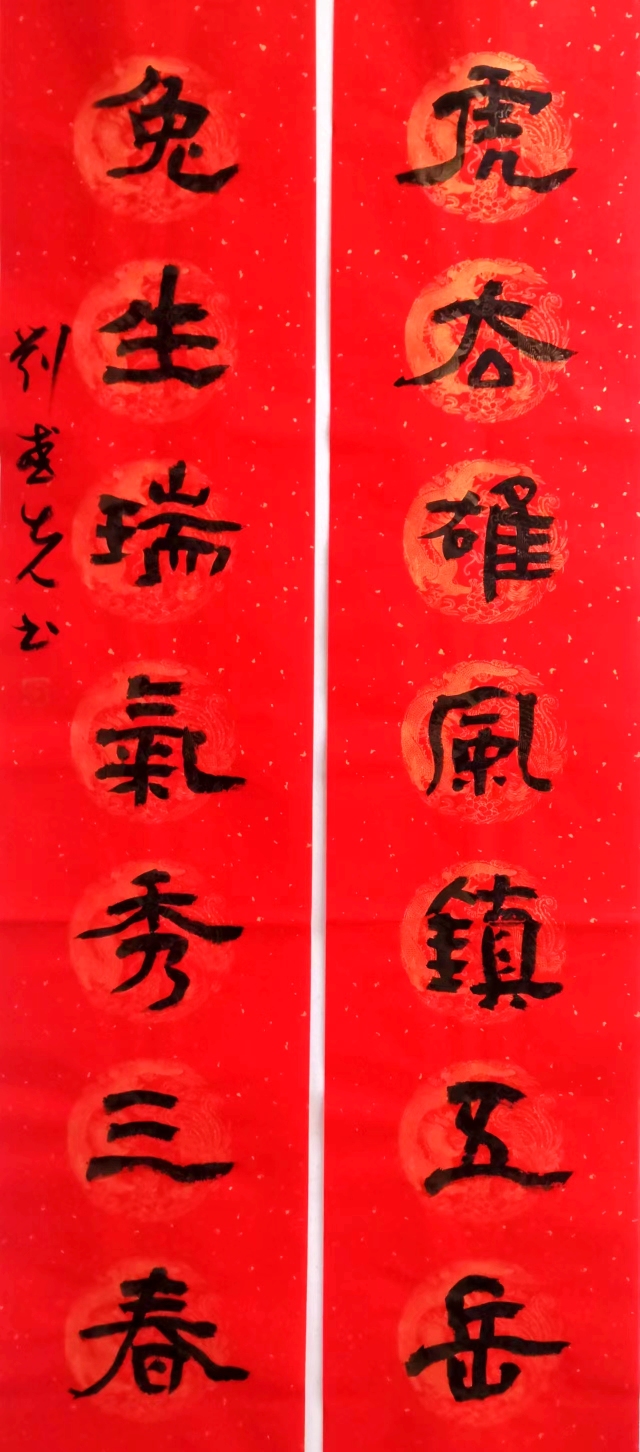 虎吞雄風鎮五岳
兔生瑞氣秀三春
刘先书